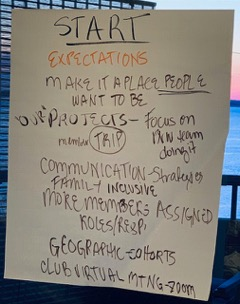 START
EXPECTATIONS
MAKE IT A PLACE PEOPLE
WANT TO BE
"OUR" PROJECTS - FOCUS on
member TRIP team
doing it
COMMUNICATION - Strategies
FAMILY INCLUSIVE
MORE MEMBERS ASSIGNED
ROLES/RESP.
GEOGRAPHIC COHORTS
CLUB VIRTUAL MTNG - ZOOM